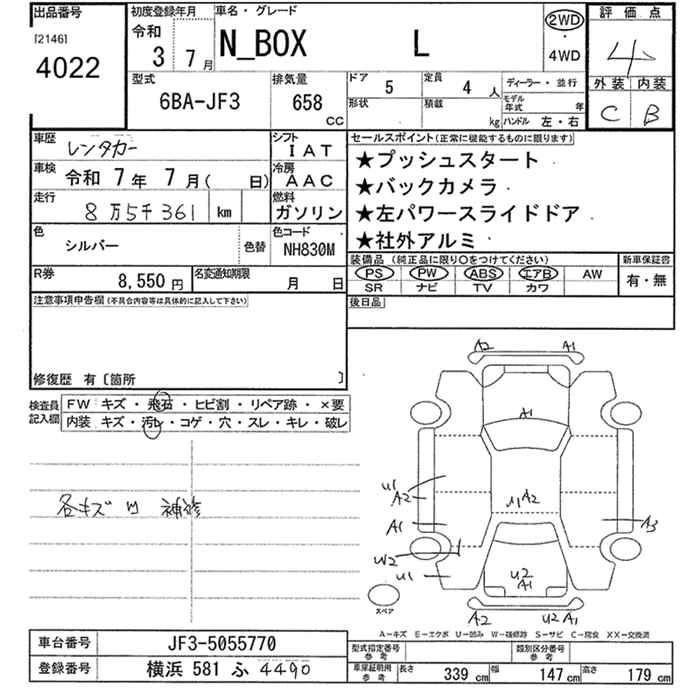 出品番号 初度登録年月 車名・グレード 評価点
[2146] 令和 N_BOX L 2WD・4WD 4
4022 3 7月 外装 内装
型式 排気量 ドア 5 定員 4人 ディーラー・並行 C B
6BA-JF3 658 CC 形状 積載 kg モデル年式 年 ハンドル 左・右
車歴 レンタカー シフト IAT セールスポイント(正常に機能するものに限ります)
車検 令和 7年 7月( 日) 冷房 AAC ★プッシュスタート
走行 8万5千361 km 燃料 ガソリン ★バックカメラ
★左パワースライドドア
色 シルバー 色替 色コード NH830M ★社外アルミ
R券 8,550円 名変通知期限 月 日 装備品(純正品に限り○をつけてください) 新車保証書
PS PW ABS エアB AW 有・無
SR ナビ TV カワ
注意事項申告欄(不具合内容等は具体的に記入して下さい) 後日品
修復歴 有〔箇所 〕
検査員記入欄 FW キズ・飛石・ヒビ割・リペア跡・×要
内装 キズ・汚レ・コゲ・穴・スレ・キレ・破レ
各キズ 補修
A2 A1
A1
U1
A2
U1 A2
A1 A3
W2
U1
U2
A1
スペア
A2 U2 A1
A-キズ E-エクボ U-凹み W-補修跡 S-サビ C-腐食 XX-交換済
車台番号 JF3-5055770 型式指定番号 参考 類別区分番号 参考
登録番号 横浜 581 ふ 4490 車庫証明用 参考 長さ 339 cm 幅 147 cm 高さ 179 cm